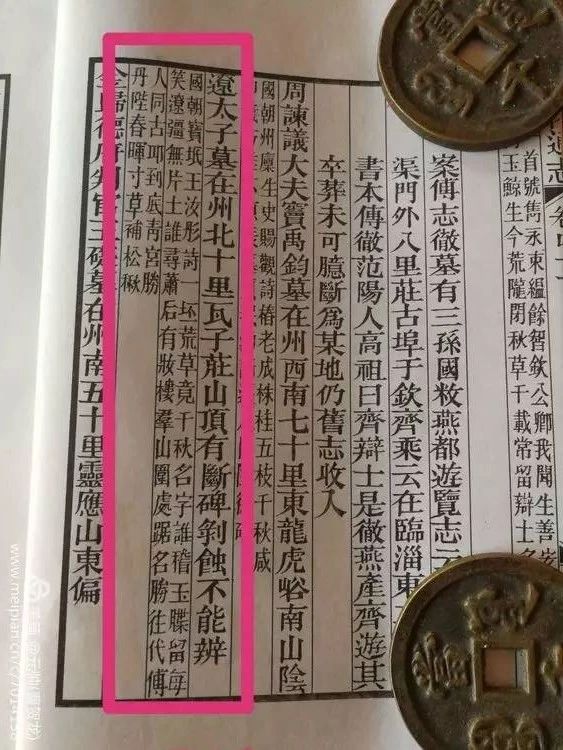 首號雋永東縕餘智欽公卿我聞生善
玉鯨生今荒隴閉秋草千載常留辯士名
案傅志徹墓有三孫國敉燕都遊覽志云
渠門外八里莊古埠于欽齊乘云在臨淄東
書本傳徹范陽人高祖曰齊辯士是徹燕產齊遊其
卒葬未可臆斷爲某地仍舊志收入
周諫議大夫竇禹鈞墓在州西南七十里東龍虎峪南山陰
國朝州廩生史賜觀詩椿老成株桂五枝千秋咸
遼太子墓在州北十里瓦子莊山頂有斷碑剝蝕不能辨
國朝寶坻王汝彤詩一坏荒草竟千秋名字誰稽玉牒留每
笑遼疆無片土誰尋蕭后有妝樓羣山圍處踞名勝往代傳
人同古邱到底青宮勝
丹陛春暉寸草補松楸
金歸德府判官王礎墓在州南五十里靈應山東偏